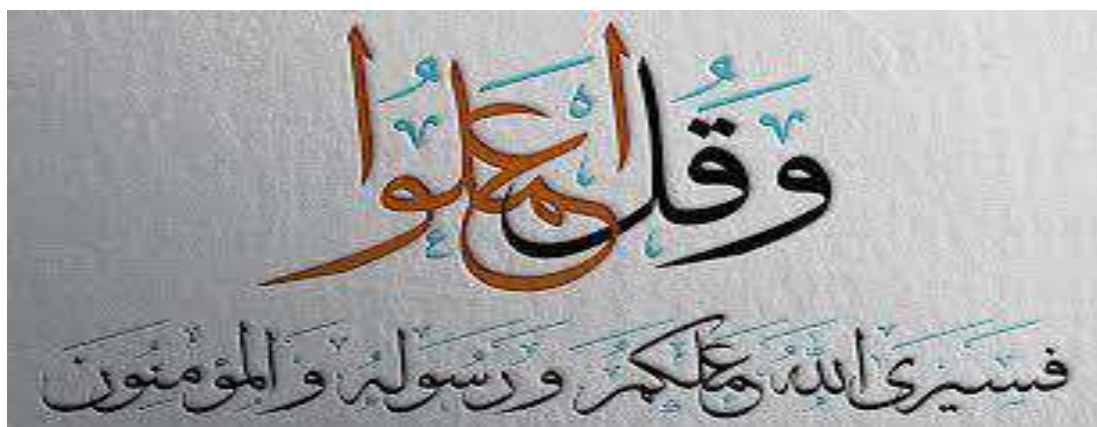 وَقُل اعْمَلُوا
فسيرى الله عملكم ورسوله والمؤمنون